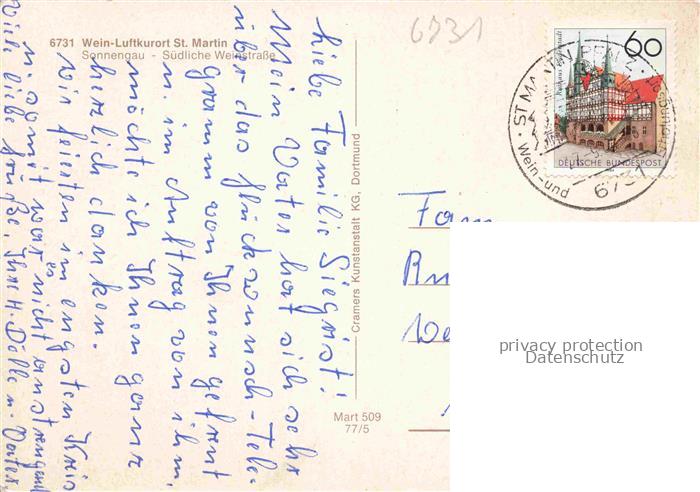 6731 Wein-Luftkurort St. Martin
Sonnengau - Südliche Weinstraße
6731
60
DEUTSCHE BUNDESPOST
ST MARTIN
Wein-und
6731
Liebe Familie Siegrist!
Mein Vater hat sich sehr
über das Glückwunsch-Tele-
gramm von Ihnen gefreut
u. im Auftrag von ihm,
möchte ich Ihnen ganz
herzlich danken.
Wir feierten im engsten Kreis
u. somit war es nicht anstrengend
Viele liebe Grüße, Ihre H. Dölle u. Vater
Cramers Kunstanstalt KG, Dortmund
Mart 509
77/5
Fam
privacy protection
Datenschutz